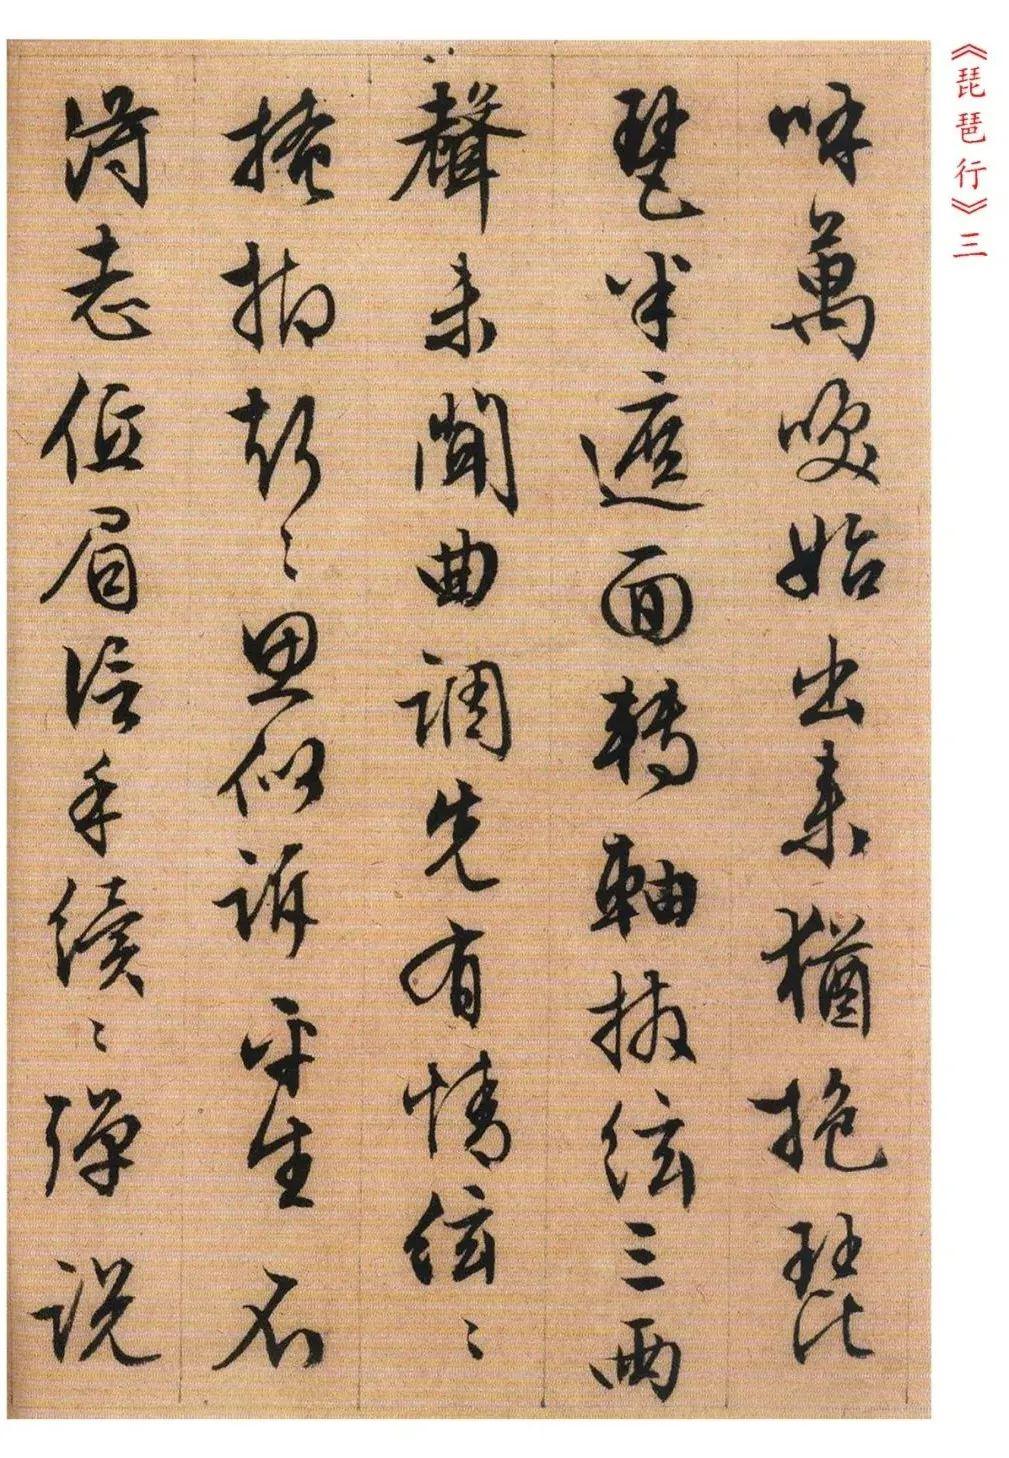 《琵琶行》三
呼萬喚始出来猶抱琵
琶半遮面轉軸撥絃三兩
聲未聞曲調先有情絃〻
掩抑聲〻思似訴平生不
得志低眉信手續〻彈說